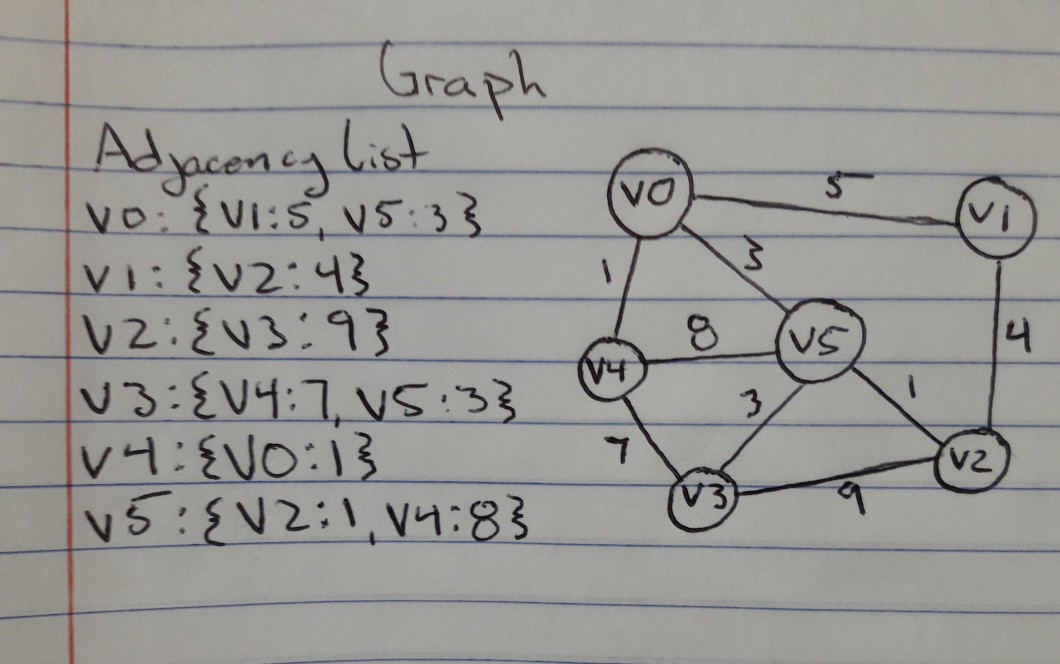 Graph
Adjacency list
V0: {V1:5, V5:3}
V1: {V2:4}
V2:{V3:9}
V3:{V4:7, V5:3}
V4:{V0:1}
V5:{V2:1, V4:8}
V0
5
V1
1
3
8
V5
4
V4
3
1
7
V2
V3
9